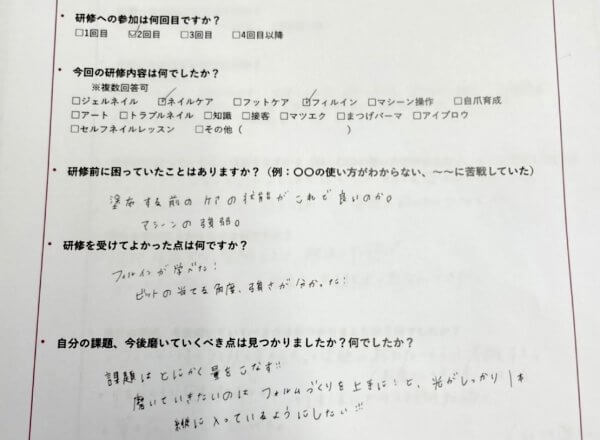 • 研修への参加は何回目ですか？
□1回目 ☑2回目 □3回目 □4回目以降
• 今回の研修内容は何でしたか？
※複数回答可
□ジェルネイル ☑ネイルケア □フットケア ☑フィルイン □マシーン操作 □自爪育成
□アート □トラブルネイル □知識 □接客 □マツエク □まつげパーマ □アイブロウ
□セルフネイルレッスン □その他（ ）
• 研修前に困っていたことはありますか？（例：〇〇の使い方がわからない、～～に苦戦していた）
塗布する前のケアの状態がこれで良いのか。
マシーンの強弱。
• 研修を受けてよかった点は何ですか？
フィルインが学べた！
ビットの当てる角度、強さが分かった！
• 自分の課題、今後磨いていくべき点は見つかりましたか？何でしたか？
課題はとにかく量をこなす!!
磨いていきたいのはフォルムづくりを上手に！と、光がしっかり1本
縦に入っているようにしたい!!!